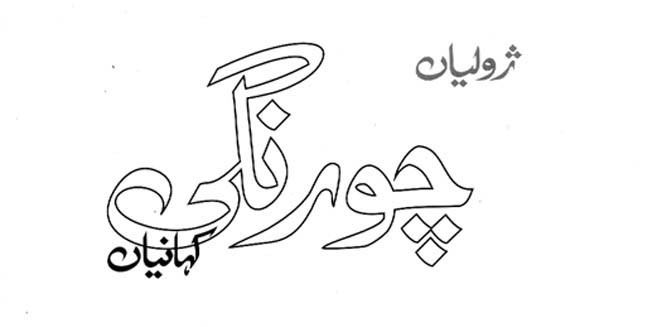 ژولیان
چورنگی
کہانیاں